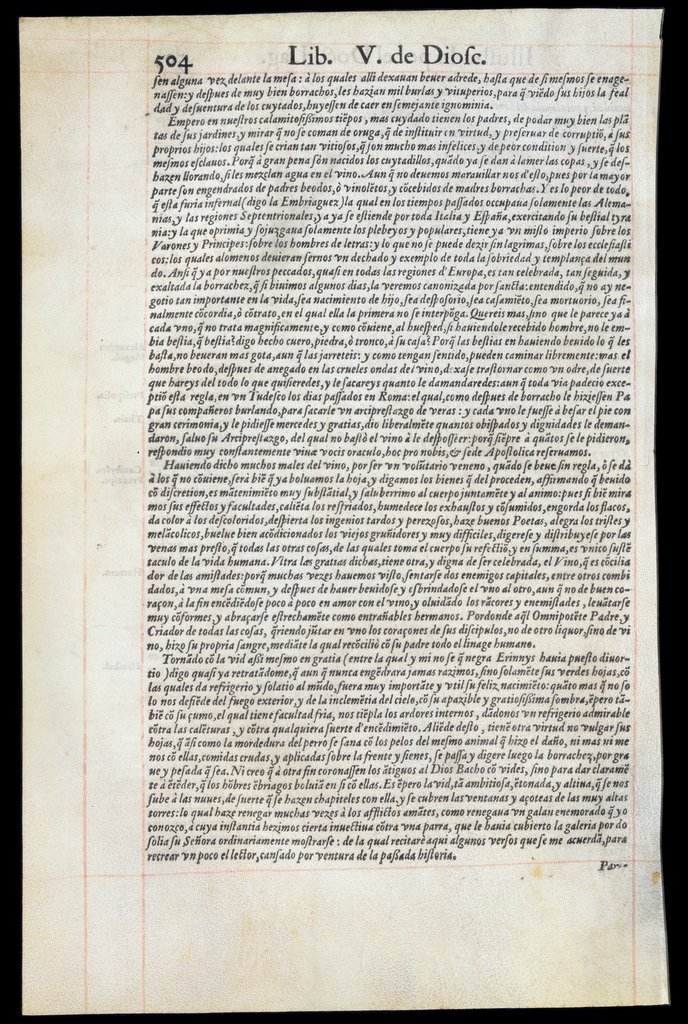 504
Lib. V. de Diosc.
sen alguna vez delante la mesa : à los quales alli dexauan beuer adrede, hasta que de si mesmos se enage-
nassen: y despues de muy bien borrachos, les hazian mil burlas y vituperios, para q̃ viẽdo sus hijos la feal
dad y desuentura de los cuytados, huyessen de caer en semejante ignominia.
Empero en nuestros calamitosissimos tiẽpos, mas cuydado tienen los padres, de podar muy bien las plã
tas de sus jardines, y mirar q̃ no se coman de oruga, q̃ de instituir en virtud, y preseruar de corruptiõ, à sus
proprios hijos: los quales se crian tan vitiosos, q̃ son mucho mas infelices, y de peor condition y suerte, q̃ los
mesmos esclauos. Porq̃ à gran pena són nacidos los cuytadillos, quãdo ya se dan à lamer las copas, y se des-
hazen llorando, si les mezclan agua en el vino. Aun q̃ no deuemos marauillar nos d'esto, pues por la mayor
parte son engendrados de padres beodos, ò vinolẽtos, y cõcebidos de madres borrachas. Y es lo peor de todo,
q̃ esta furia infernal (digo la Embriaguez) la qual en los tiempos passados occupaua solamente las Alema-
nias, y las regiones Septentrionales, ya ya se estiende por toda Italia y España, exercitando su bestial tyra
nia: y la que oprimia y sojuzgaua solamente los plebeyos y populares, tiene ya vn misto imperio sobre los
Varones y Principes: sobre los hombres de letras: y lo que no se puede dezir sin lagrimas, sobre los ecclesiasti
cos: los quales alomenos deuieran sernos vn dechado y exemplo de toda la sobriedad y templança del mun
do. Ansi q̃ ya por nuestros peccados, quasi en todas las regiones d'Europa, es tan celebrada, tan seguida, y
exaltada la borrachez, q̃ si biuimos algunos dias, la veremos canonizada por sancta: entendido, q̃ no ay ne-
gotio tan importante en la vida, sea nacimiento de hijo, sea desposorio, sea casamiẽto, sea mortuorio, sea fi-
nalmente cõcordia, ò cõtrato, en el qual ella la primera no se interpõga. Quereis mas, sino que le parece ya à
cada vno, q̃ no trata magnificamente, y como cõuiene, al huesped, si hauiendole recebido hombre, no le em-
bia bestia, q̃ bestia? digo hecho cuero, piedra, ò tronco, à su casa? Porq̃ las bestias en hauiendo beuido lo q̃ les
basta, no beueran mas gota, aun q̃ las jarreteis: y como tengan sentido, pueden caminar libremente: mas el
hombre beodo, despues de anegado en las crueles ondas del vino, dexase trastornar como vn odre, de suerte
que hareys del todo lo que quisieredes, y le sacareys quanto le demandaredes: aun q̃ toda via padecio exce-
ptiõ esta regla, en vn Tudesco los dias passados en Roma: el qual, como despues de borracho le hiziessen Pa
pa sus compañeros burlando, para sacarle vn arciprestazgo de veras : y cada vno le fuesse à besar el pie con
gran cerimonia, y le pidiesse mercedes y gratias, dio liberalmẽte quantos obispados y dignidades le deman-
daron, saluo su Arciprestazgo, del qual no bastò el vino à le desposseer: porq̃ siẽpre à quãtos se le pidieron,
respondio muy constantemente viuæ vocis oraculo, hoc pro nobis, & sede Apostolica reseruamos.
Hauiendo dicho muchos males del vino, por ser vn volũtario veneno, quãdo se beue sin regla, ò se dà
à los q̃ no cõuiene, serà biẽ q̃ ya boluamos la hoja, y digamos los bienes q̃ del proceden, affirmando q̃ beuido
cõ discretion, es mãtenimiẽto muy substãtial, y saluberrimo al cuerpo juntamẽte y al animo: pues si biẽ mira
mos sus effectos y facultades, caliẽta los resfriados, humedece los exhaustos y cõsumidos, engorda los flacos,
da color à los descoloridos, despierta los ingenios tardos y perezosos, haze buenos Poetas, alegra los tristes y
melãcolicos, buelue bien acõdicionados los viejos gruñidores y muy difficiles, digerese y distribuyese por las
venas mas presto, q̃ todas las otras cosas, de las quales toma el cuerpo su refectiõ, y en summa, es vnico sustẽ
taculo de la vida humana. Vltra las gratias dichas, tiene otra, y digna de ser celebrada, el Vino, q̃ es cõcilia
dor de las amistades: porq̃ muchas vezes hauemos visto, sentarse dos enemigos capitales, entre otros combi
dados, à vna mesa comun, y despues de hauer beuidose y esbrindadose el vno al otro, aun q̃ no de buen co-
raçon, à la fin encẽdiẽdose poco à poco en amor con el vino, y oluidãdo los rãcores y enemistades, leuãtarse
muy cõformes, y abraçarse estrechamẽte como entrañables hermanos. Pordonde aq̃l Omnipotẽte Padre, y
Criador de todas las cosas, q̃riendo jũtar en vno los coraçones de sus discipulos, no de otro liquor, sino de vi
no, hizo su propria sangre, mediãte la qual recõciliò cõ su padre todo el linage humano.
Tornãdo cõ la vid assi mesmo en gratia (entre la qual y mi no se q̃ negra Erinnys hauia puesto diuor-
tio) digo quasi ya retratãdome, q̃ aun q̃ nunca engẽdrara jamas razimos, sino solamẽte sus verdes hojas, cõ
las quales da refrigerio y solatio al mũdo, fuera muy importãte y vtil su feliz nacimiẽto: quãto mas q̃ no so
lo nos defiẽde del fuego exterior, y de la inclemẽtia del cielo, cõ su apazible y gratiosissima sombra, ẽpero tã-
biẽ cõ su çumo, el qual tiene facultad fria, nos tiẽpla los ardores internos, dãdonos vn refrigerio admirable
cõtra las calẽturas, y cõtra qualquiera suerte d'encẽdimiẽto. Aliẽde desto, tienẽ otra virtud no vulgar sus
hojas, q̃ ãsi como la mordedura del perro se sana cõ los pelos del mesmo animal q̃ hizo el daño, ni mas ni me
nos cõ ellas, comidas crudas, y aplicadas sobre la frente y sienes, se passa y digere luego la borrachez, por gra
ue y pesada q̃ sea. Ni creo q̃ à otra fin coronassen los ãtiguos al Dios Bacho cõ vides, sino para dar claramẽ
te à ẽtẽder, q̃ los hõbres ẽbriagos boluiã en si cõ ellas. Es ẽpero la vid, tã ambitiosa, ẽtonada, y altiua, q̃ se nos
sube à las nuues, de suerte q̃ se hazen chapiteles con ella, y se cubren las ventanas y açoteas de las muy altas
torres: lo qual haze renegar muchas vezes à los afflictos amãtes, como renegaua vn galan enamorado q̃ yo
conozco, à cuya instantia hezimos cierta inuectiua cõtra vna parra, que le hauia cubierto la galeria por do
solia su Señora ordinariamente mostrarse : de la qual recitarè aqui algunos versos que se me acuerdã, para
recrear vn poco el lector, cansado por ventura de la passada historia.
Par-